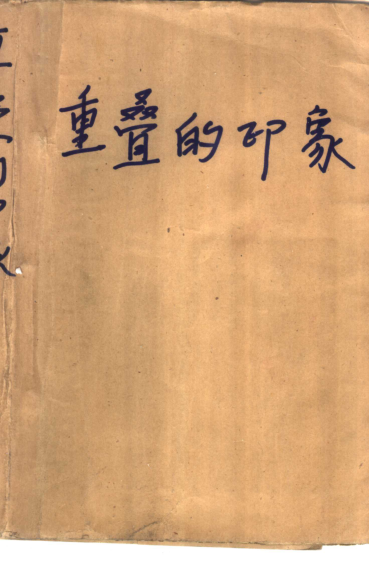 重叠的印象